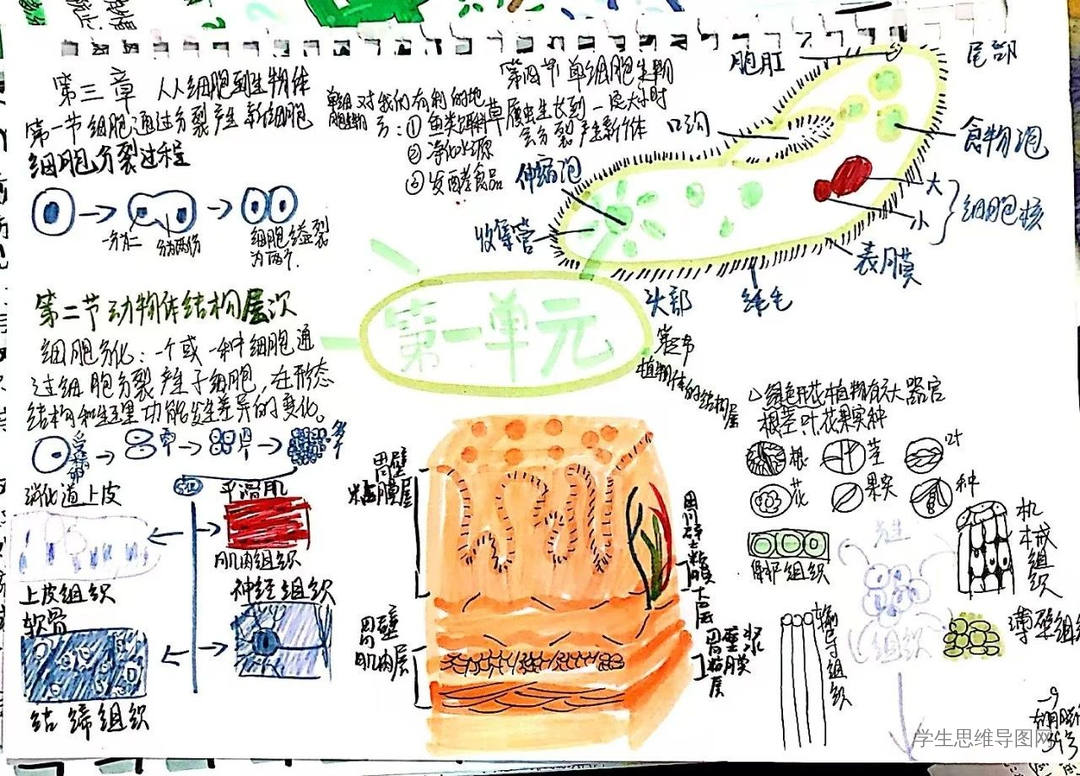 第三章 从细胞到生物体
第一节 细胞通过分裂产生新细胞
细胞分裂过程
一分为二
分为两份
细胞分裂
为两个
第二节 动物体结构层次
细胞分化:一个或一种细胞通
过细胞分裂产生子细胞,在形态
结构和生理功能发生差异的变化。
消化道上皮
平滑肌
上皮组织
肌肉组织
软骨
神经组织
结缔组织
第四节 单细胞生物
对我们有利的地
方:①鱼类饵料
②净化水源
③发酵食品
草履虫生长到一定大小时
会分裂产生新个体
胞肛
尾部
口沟
食物泡
伸缩泡
大
小
细胞核
收集管
表膜
头部
纤毛
第一单元
第三节
植物体的结构层
绿色开花植物有六大器官
根茎叶花果实种
根
茎
叶
花
果实
种
胃壁
粘膜层
胃壁
肌肉层
机械组织
输导组织
组织
学生思维导图网